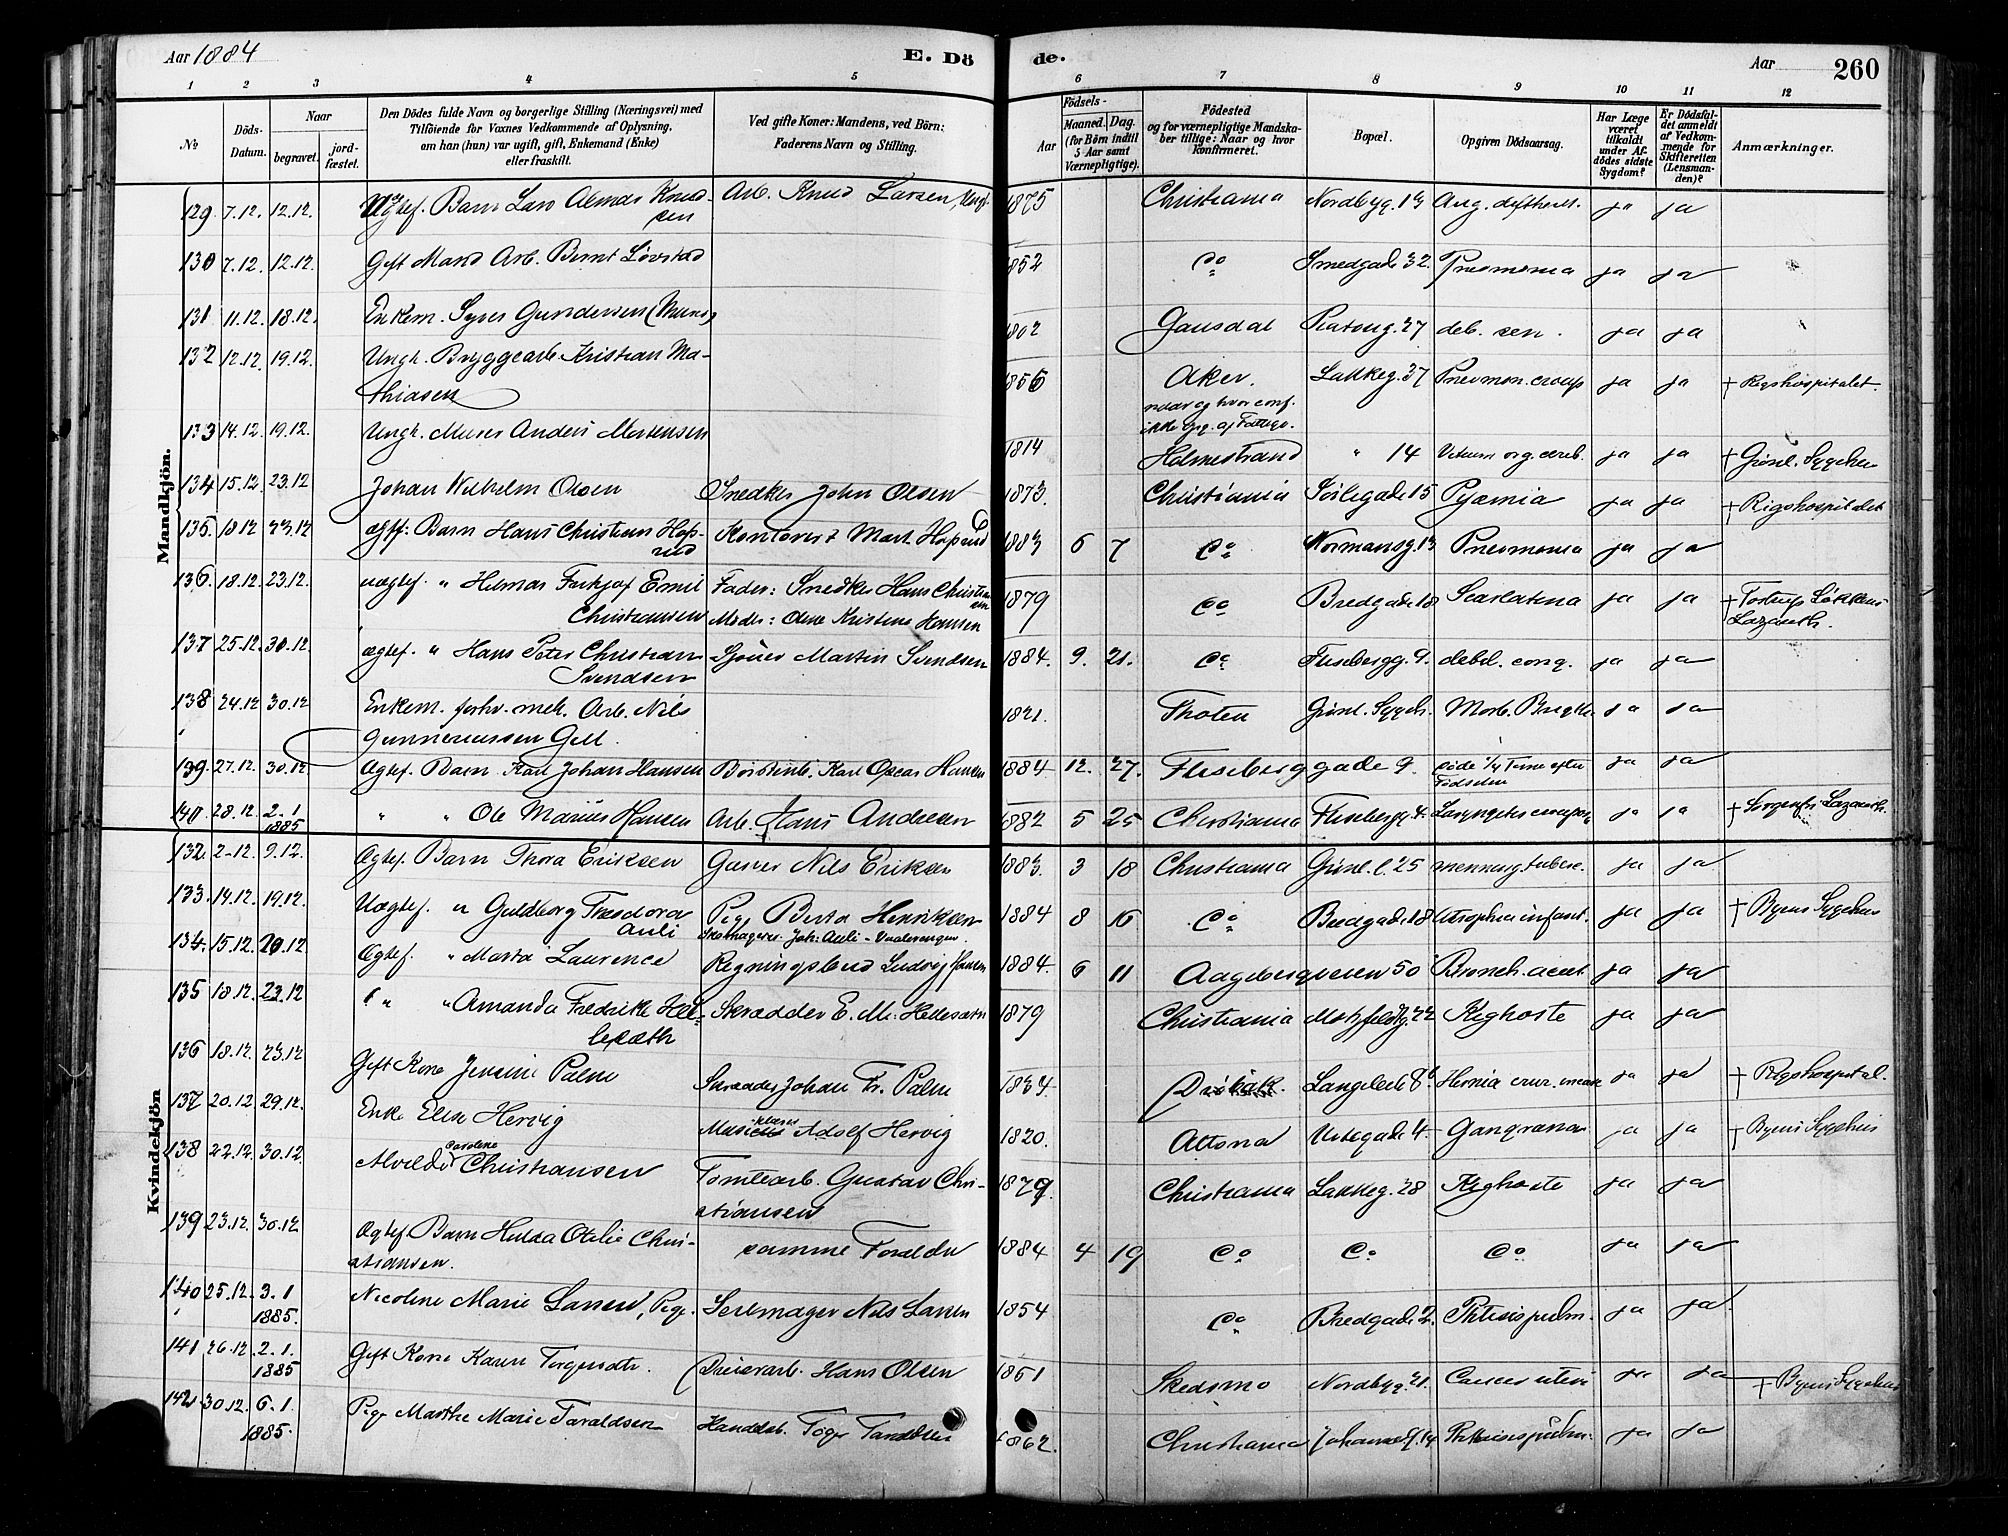 Aar 1884
E. Dö
de.
Aar
260
1 2 3 4 5 6 7 8 9 10 11 12
№
Döds-Datum.
Naar
begravet.
jord-fæstet.
Den Dödes fulde Navn og borgerlige Stilling (Næringsvei) med
Tilföiende for Voxnes Vedkommende af Oplysning,
om han (hun) var ugift, gift, Enkemand (Enke)
eller fraskilt.
Ved gifte Koner: Mandens, ved Börn:
Faderens Navn og Stilling.
Födsels-
Aar
Maaned. Dag.
(for Börn indtil
5 Aar samt
Værnepligtige).
Födested
og for værnepligtige Mandska-
ber tillige: Naar og hvor
konfirmeret.
Bopæl.
Opgiven Dödsaarsag.
Har Læge
været
tilkaldt
under Af-
dödes sidste
Sygdom?
Er Dödsfal-
det anmeldt
af Vedkom-
mende for
Skifteretten
(Lensman-
den)?
Anmærkninger.
Mandkjön.
129 7.12. 12.12. Barn Lars Knud- Arb. Knud Larsen, 1875 Christiania Nordbyg. 13 ja ja
sen
130 7.12. 12.12. Gift Mand Arb. Bernt Løvstad 1852 Do Smedgade 32. Pneumonia ja ja
131 11.12. 18.12. Enkem. Syver Gundersen 1802 Gausdal 27 deb. sen. ja ja
132 12.12 19.12. Ungk. Bryggearb. Kristian Ma- 1856 Aker. Lakkeg. 37 Pneumon. croup ja ja † Rigshospitalet
thiasen
naar og hvor conf.
ikke
133 14.12. 19.12. Ungk. Murer Anders Mortensen 1814 Holmestrand " 14 Vitium org. cereb. ja ja † Grünl. Sygehus
134 15.12. 23.12 Johan Wilhelm Olsen Snedker John Olsen 1873. Christiania Sørligade 15 Pyæmia ja ja † Rigshospitalet
135. 18.12 23.12 ægtf: Barn Hans Christian Hof- Kontorist Mart. 1883 6 7 Do Normansg. 13 Pneumonia ja ja
136. 18.12. 23.12. uægtef. " Hilmar Emil Fader: Snedker Hans Christian- 1879 Do Bredgade 18 Scarlatina ja ja † Løkkens
Christiansen Moder: Kristine Hansen
Lazareth.
137 25.12. 30.12. ægtef. " Hans Peter Christian Martin Svendsen 1884. 9. 21. Do Fliseberg. 9. debil. cong. ja ja
Svendsen
138 24.12. 30.12 Enkem. forhv. mek. Arb. Nils 1821. Thoten Grünl. Sygeh. Morb. ja ja
139. 27.12. 30.12 Ægtef. Barn Karl Johan Hansen Karl Oscar Hansen 1884 12. 27. Fliseberggade 9. døde Time efter ja ja
Fødselen
140 28.12. 2.1 " " Ole Marius Hansen Arb. Hans Andersen 1882 5 25 Christiania Flisebergg. 4. ja ja † Lazareth.
1885
Kvindekjön
132. 2.12. 9.12. Ægtef. Barn Thora Eriksen Nils Eriksen 1883. 3 18 Christiania Grünl. l. 25 ja ja
133. 14.12. 19.12. Uægtef. " Guldborg Theodora Pige Berta Henriksen 1884 8 16 Do Bredgade 18 Atrophia infant. ja ja † Byens Sygehus
Auli Skomager Joh. Auli - Vaalerengen.
134. 15.12. 20.12 Ægtef. " Marta Laurence Regningsbud Ludvig Hansen 1884. 6 11 Aagebergveien 50 Bronch. acut ja ja
135 18.12. 23.12 " " Amanda Fredrikke Hel- Skrædder E. M. 1879 Christiania Motzfeldtg. 22 Kighoste ja ja
136 18.12. 23.12 Gift Kone Jensine Palm Skrædder Johan Fr. Palm 1834. Drøbak. Langeleik 8b Hernia ja ja † Rigshospital.
137 20.12. 29.12. Enke Elise Hervig Adolf Hervig 1820. Altona Urtegade 4 Gangræna ja ja † Byens Sygehus
Caroline
138 22.12. 30.12. Alvilde Christiansen Tomtearb. Gustav Chri- 1879. Christiania Lakkeg. 28 Kighoste ja ja
stiansen
139 23.12. 30.12 Ægtef Barn Hulda Otilie Chri- samme Foreldre 1884 4 19 Do Do Do ja ja
stiansen.
140 25.12. 3.1 Nicoline Marie Larsen, Pige. Seilmager Nils Larsen 1854 Do Bredgade 2. Phtisis pulm. ja ja
1885.
141 26.12. 2.1. Gift Kone Karen Hans Olsen 1851 Skedsmo Nordbyg. 21. Cancer uteri ja ja † Byens Sygehus
1885
142 30.12. 6.1. Pige Marthe Marie Taraldsen 1862. Christiania 14 Phthisis pulm. ja ja
1885.